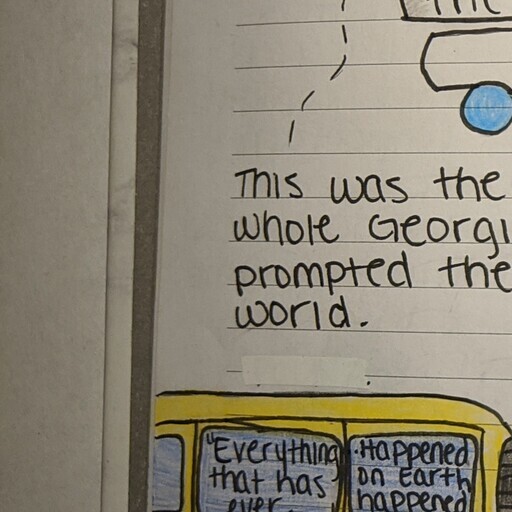 This was the
whole Georgi
prompted the
world.
"Everything
that has
ever
Happened
on Earth
happened